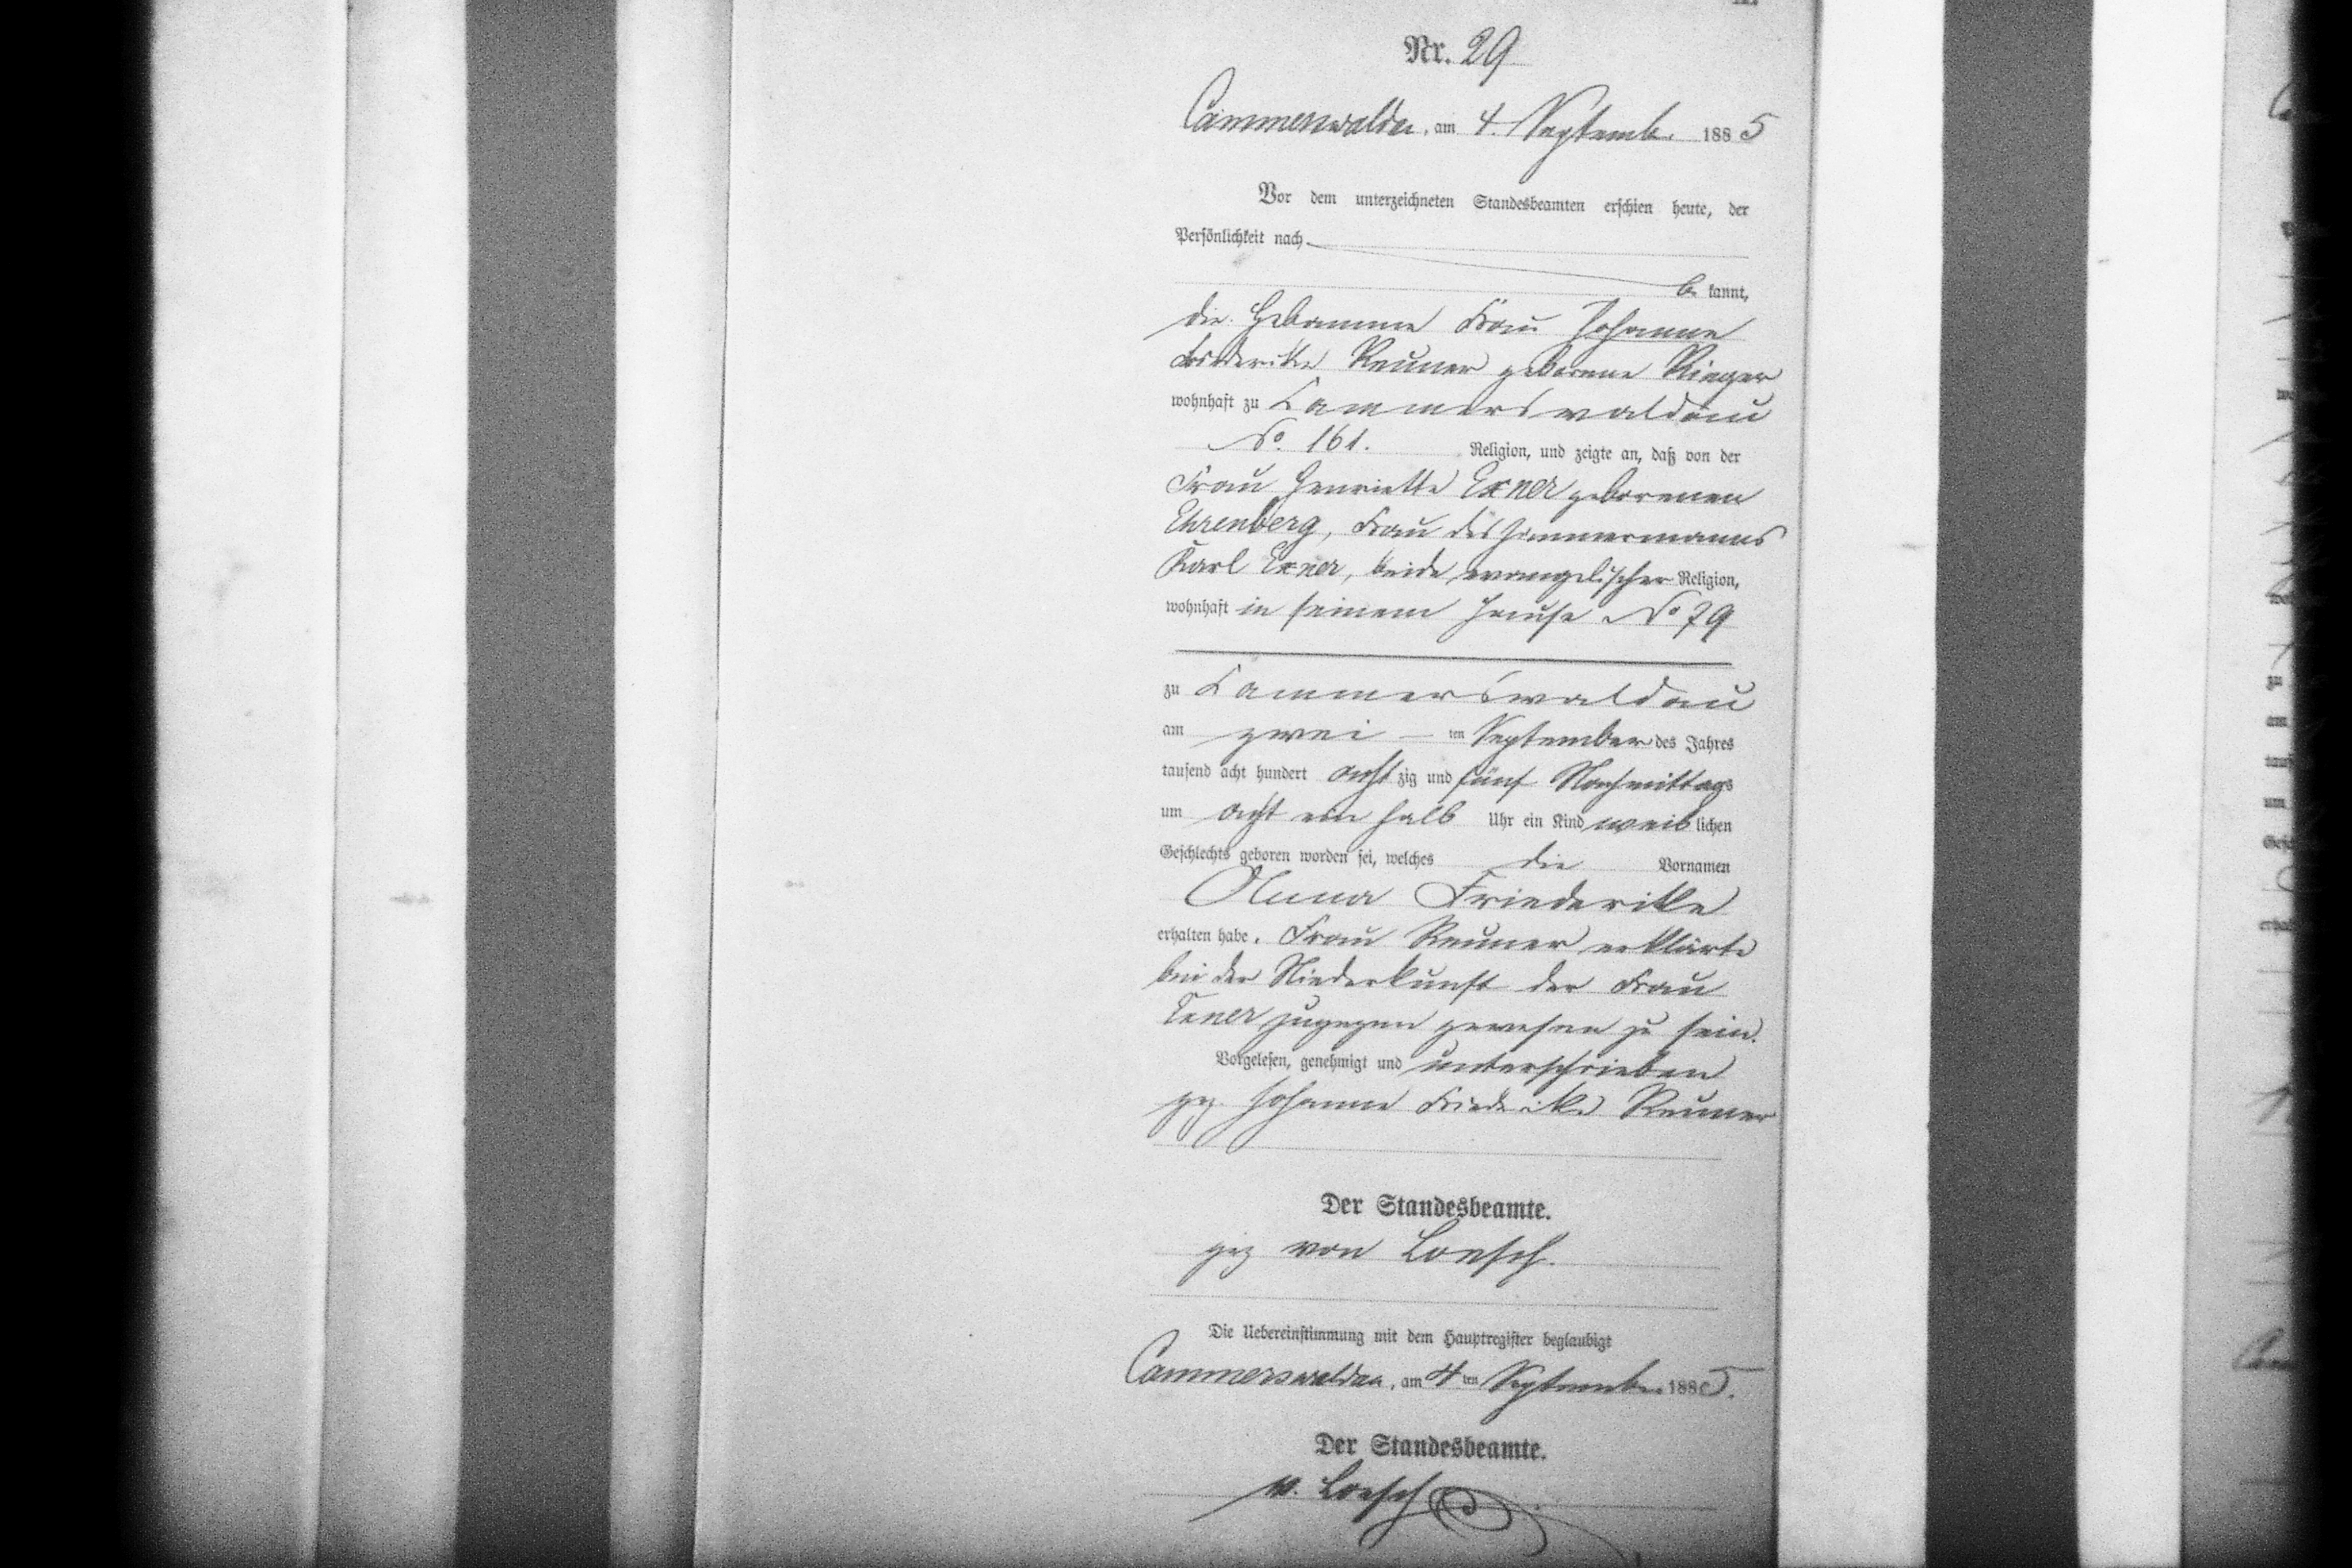 Nr. 29
Cammerswaldau, am 4. Septemb. 1885
Vor dem unterzeichneten Standesbeamten erschien heute, der
Persönlichkeit nach
be kannt,
die Hebamme Frau Johanne
Friederike Reuner geborene Rieger
wohnhaft zu Cammerswaldau
No. 161. Religion, und zeigte an, daß von der
Frau Henriette Exner geborenen
Ehrenberg, Frau des Zimmermanns
Karl Exner, beide evangelischer Religion,
wohnhaft in seinem Hause No 79
zu Cammerswaldau
am zwei – ten September des Jahres
tausend acht hundert achtzig und fünf Nachmittags
um acht ein halb Uhr ein Kind weiblichen
Geschlechts geboren worden sei, welches die Vornamen
Anna Friederike
erhalten habe. Frau Reuner erklärte
bei der Niederkunft der Frau
Exner zugegen gewesen zu sein.
Vorgelesen, genehmigt und unterschrieben
gez. Johanne Friederike Reuner
Der Standesbeamte.
gez von Loesch.
Die Uebereinstimmung mit dem Hauptregister beglaubigt
Cammerswaldau, am 4ten Septembr. 1885.
Der Standesbeamte.
v. Loesch